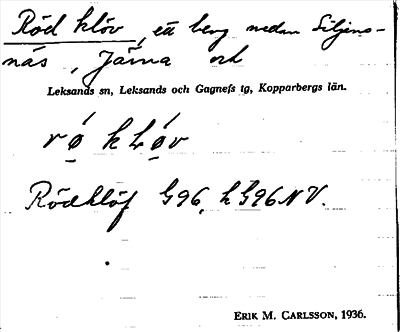 Röd klöv, ett berg nedan Siljans-
näs, Järna och
Leksands sn, Leksands och Gagnefs tg, Kopparbergs län.
Rödklöf G96, h G96 NV.
ERIK M. CARLSSON, 1936.